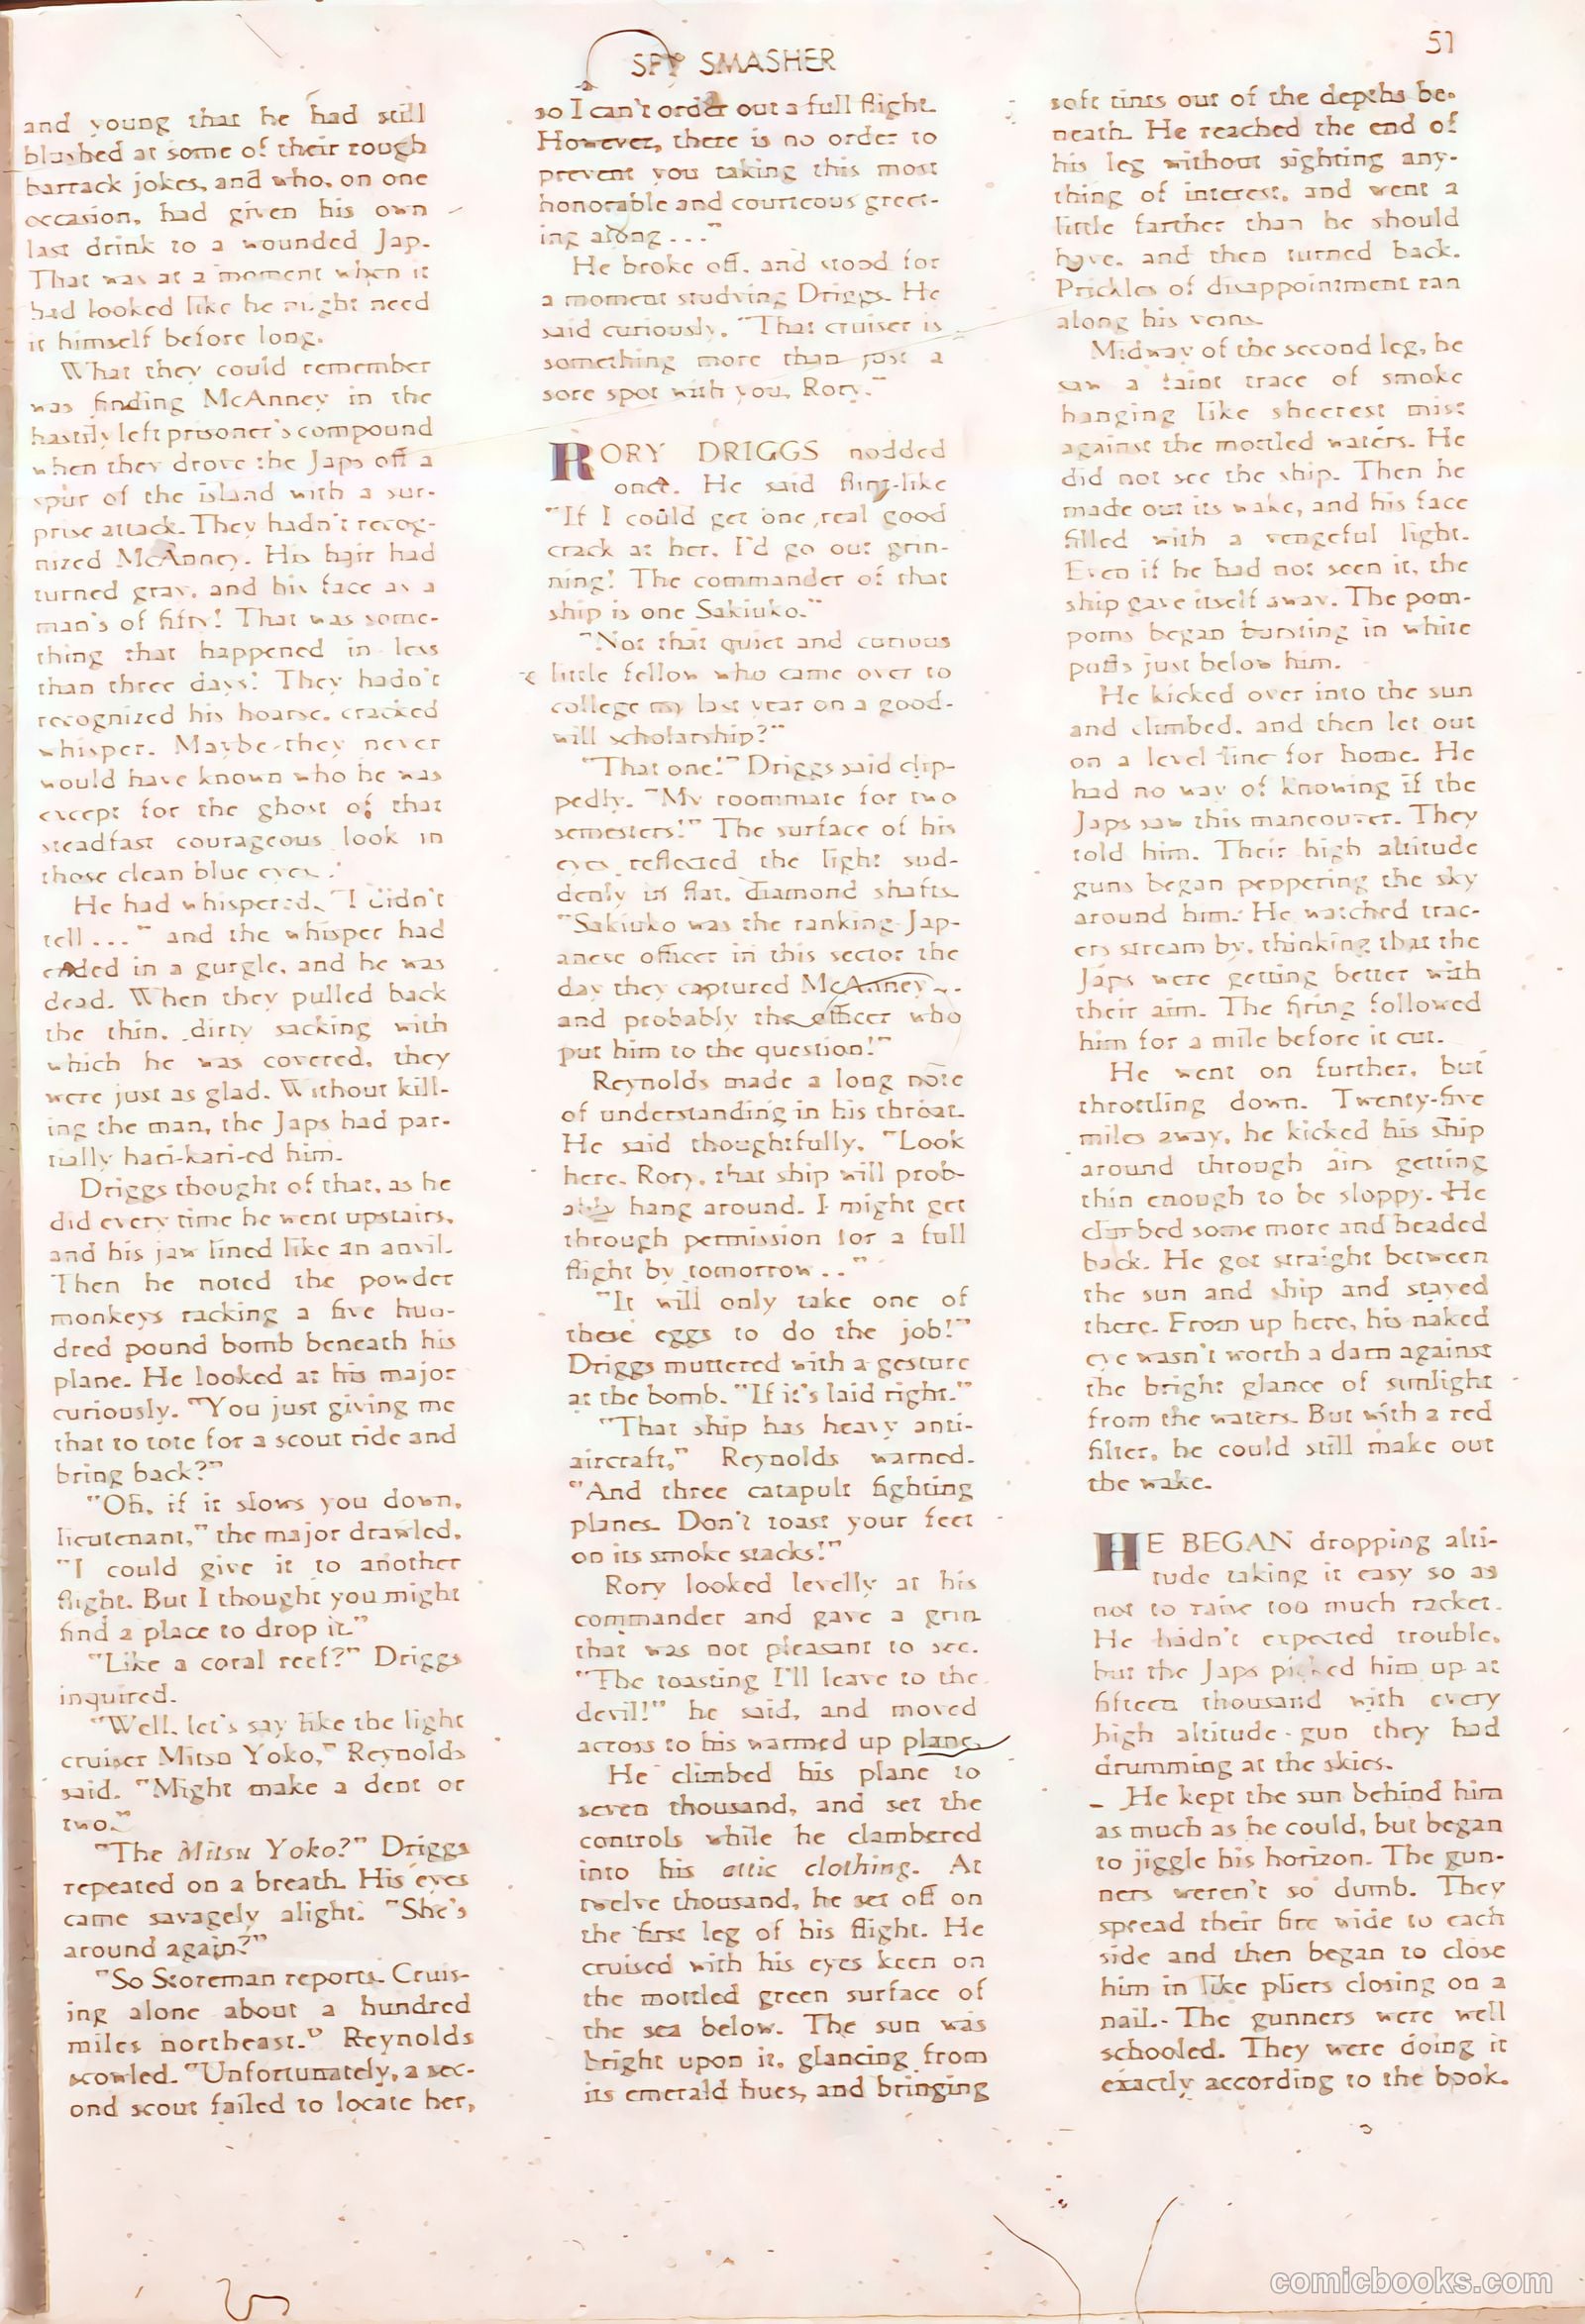 SPY SMASHER
51
and young that he had still
blushed at some of their rough
barrack jokes, and who, on one
occasion, had given his own
last drink to a wounded Jap.
That was at a moment when it
had looked like he might need
it himself before long.
What they could remember
was finding McAnney in the
hastily left prisoner's compound
when they drove the Japs off a
spur of the island with a sur-
prise attack. They hadn't recog-
nized McAnney. His hair had
turned gray, and his face as a
man's of fifty! That was some-
thing that happened in less
than three days! They hadn't
recognized his hoarse, cracked
whisper. Maybe they never
would have known who he was
except for the ghost of that
steadfast courageous look in
those clean blue eyes.
He had whispered, "I didn't
tell . . . " and the whisper had
ended in a gurgle, and he was
dead. When they pulled back
the thin, dirty sacking with
which he was covered, they
were just as glad. Without kill-
ing the man, the Japs had par-
tially hari-kari-ed him.
Driggs thought of that, as he
did every time he went upstairs,
and his jaw lined like an anvil.
Then he noted the powder
monkeys racking a five hun-
dred pound bomb beneath his
plane. He looked at his major
curiously. "You just giving me
that to tote for a scout ride and
bring back?"
"Oh, if it slows you down,
lieutenant," the major drawled,
"I could give it to another
flight. But I thought you might
find a place to drop it."
"Like a coral reef?" Driggs
inquired.
"Well, let's say like the light
cruiser Mitsu Yoko," Reynolds
said. "Might make a dent or
two."
"The Mitsu Yoko?" Driggs
repeated on a breath. His eyes
came savagely alight. "She's
around again?"
"So Storeman reports. Cruis-
ing alone about a hundred
miles northeast." Reynolds
scowled. "Unfortunately, a sec-
ond scout failed to locate her,
so I can't order out a full flight.
However, there is no order to
prevent you taking this most
honorable and courteous greet-
ing along . . ."
He broke off, and stood for
a moment studying Driggs. He
said curiously, "That cruiser is
something more than just a
sore spot with you, Rory."
RORY DRIGGS nodded
once. He said flint-like
"If I could get one real good
crack at her, I'd go out grin-
ning! The commander of that
ship is one Sakiuko."
"Not that quiet and curious
little fellow who came over to
college my last year on a good-
will scholarship?"
"That one!" Driggs said clip-
pedly. "My roommate for two
semesters!" The surface of his
eyes reflected the light sud-
denly in flat, diamond shafts.
"Sakiuko was the ranking Jap-
anese officer in this sector the
day they captured McAnney . .
and probably the officer who
put him to the question!"
Reynolds made a long note
of understanding in his throat.
He said thoughtfully, "Look
here, Rory, that ship will prob-
ably hang around. I might get
through permission for a full
flight by tomorrow . . "
"It will only take one of
these eggs to do the job!"
Driggs muttered with a gesture
at the bomb. "If it's laid right."
"That ship has heavy anti-
aircraft," Reynolds warned.
"And three catapult fighting
planes. Don't toast your feet
on its smoke stacks!"
Rory looked levelly at his
commander and gave a grin
that was not pleasant to see.
"The toasting I'll leave to the
devil!" he said, and moved
across to his warmed up plane.
He climbed his plane to
seven thousand, and set the
controls while he clambered
into his attic clothing. At
twelve thousand, he set off on
the first leg of his flight. He
cruised with his eyes keen on
the mottled green surface of
the sea below. The sun was
bright upon it, glancing from
its emerald hues, and bringing
soft tints out of the depths be-
neath. He reached the end of
his leg without sighting any-
thing of interest, and went a
little farther than he should
have, and then turned back.
Prickles of disappointment ran
along his veins.
Midway of the second leg, he
saw a faint trace of smoke
hanging like sheerest mist
against the mottled waters. He
did not see the ship. Then he
made out its wake, and his face
filled with a vengeful light.
Even if he had not seen it, the
ship gave itself away. The pom-
poms began bursting in white
puffs just below him.
He kicked over into the sun
and climbed, and then let out
on a level line for home. He
had no way of knowing if the
Japs saw this maneouver. They
told him. Their high altitude
guns began peppering the sky
around him. He watched trac-
ers stream by, thinking that the
Japs were getting better with
their aim. The firing followed
him for a mile before it cut.
He went on further, but
throttling down. Twenty-five
miles away, he kicked his ship
around through air getting
thin enough to be sloppy. He
climbed some more and headed
back. He got straight between
the sun and ship and stayed
there. From up here, his naked
eye wasn't worth a darn against
the bright glance of sunlight
from the waters. But with a red
filter, he could still make out
the wake.
HE BEGAN dropping alti-
tude taking it easy so as
not to raise too much racket.
He hadn't expected trouble,
but the Japs picked him up at
fifteen thousand with every
high altitude gun they had
drumming at the skies.
He kept the sun behind him
as much as he could, but began
to jiggle his horizon. The gun-
ners weren't so dumb. They
spread their fire wide to each
side and then began to close
him in like pliers closing on a
nail. The gunners were well
schooled. They were doing it
exactly according to the book.
comicbooks.com